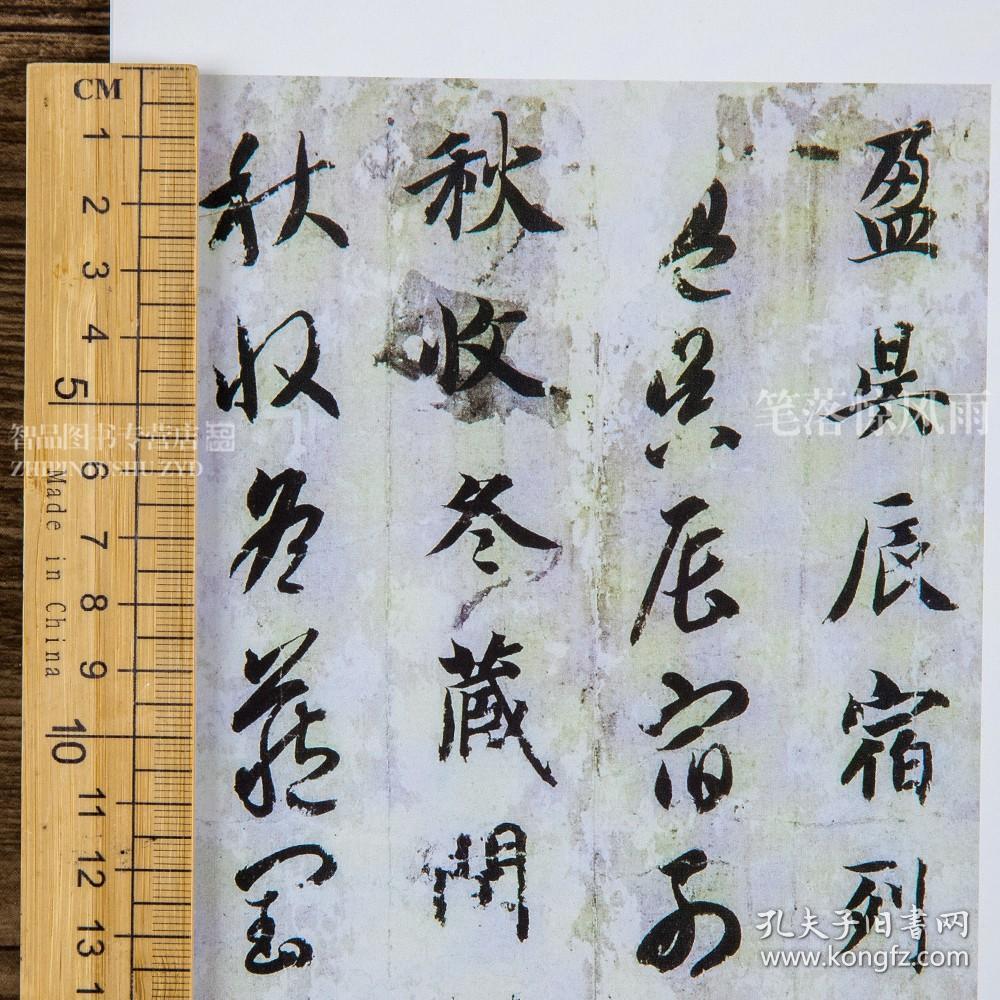 盈昃辰宿列
盈昃辰宿列
秋收冬藏閏
秋收冬藏閏
CM
1
2
3
4
5
6
7
8
9
10
11
12
13
Made in China
智品图书专营店
ZHIPINGSHUZYD
笔落惊风雨
孔夫子旧书网
www.kongfz.com